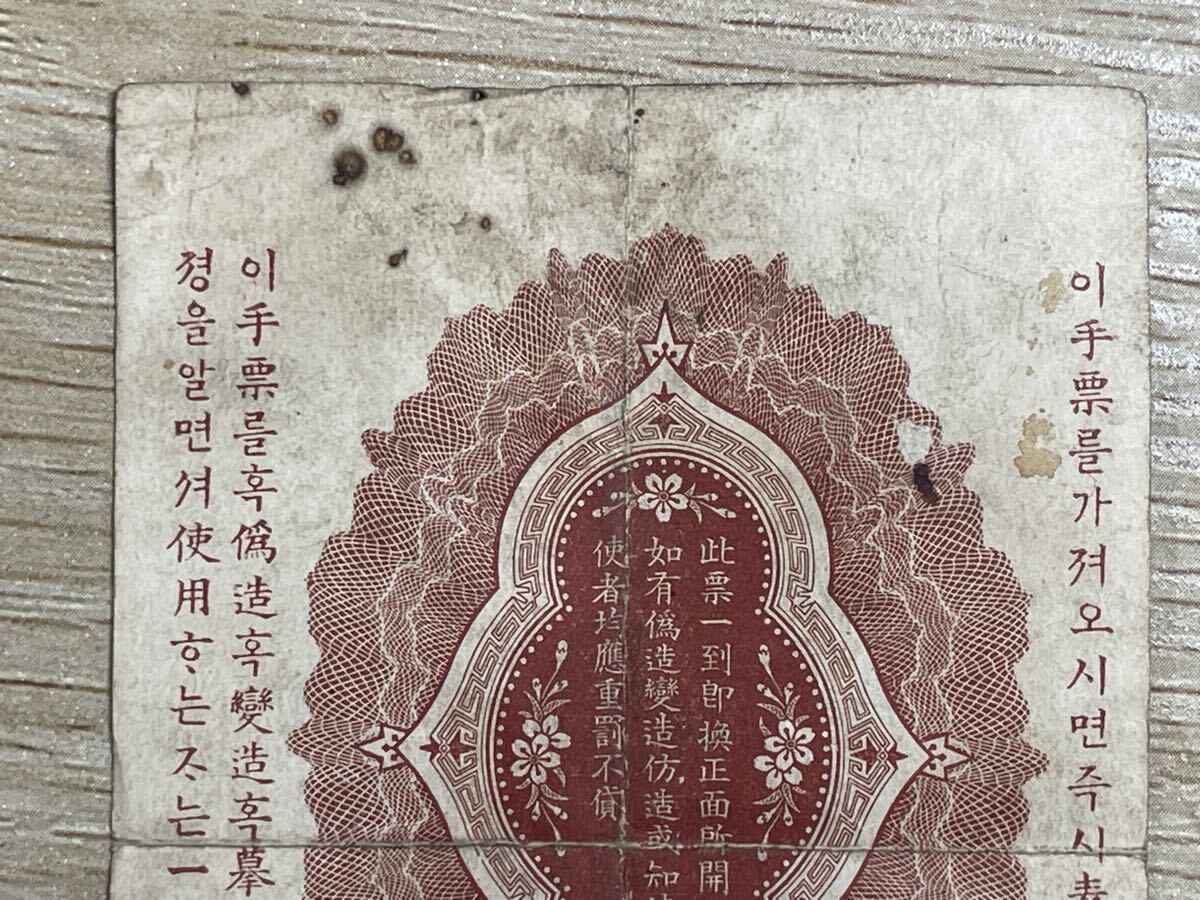 이手票를가져오시면즉시表
此票一到卽換正面所開
如有僞造變造仿造或知
使者均應重罰不貸
이手票를혹僞造혹變造혹摹
졍을알면셔使用ᄒᆞ는ᄌᆞ는一